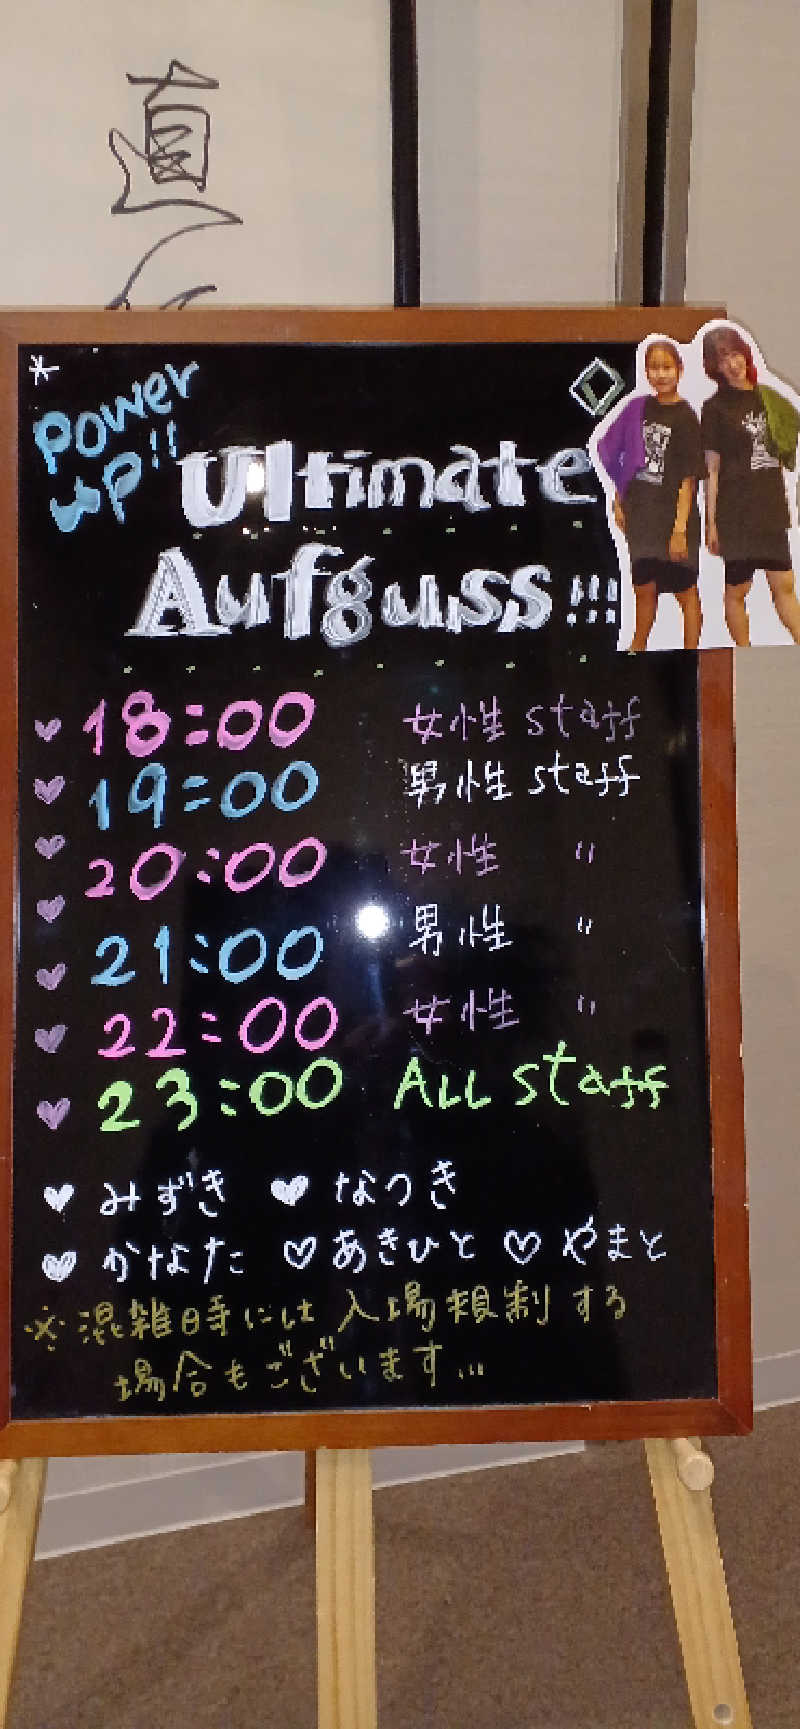 直
Power
up!!
Ultimate
Aufguss!!!
18:00 女性 staff
19:00 男性 staff
20:00 女性 〃
21:00 男性 〃
22:00 女性 〃
23:00 ALL staff
♥ みずき ♥ なつき
♥ かなた ♡ あきひと ♡ やまと
※混雑時には入場規制する
場合もございます...